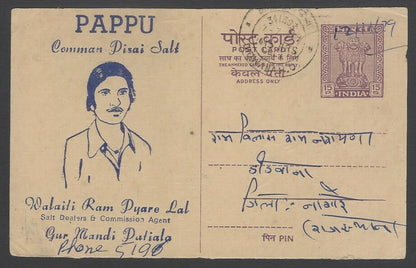 PAPPU
Comman Disai Salt
Walaiti Ram Pyare Lal
Salt Dealers & Commission Agent
Gur Mandi Patiala
Phone 5196
पोस्ट कार्ड
POST CARD
साथ का कार्ड जवाब के लिए है
केवल पता
ADDRESS ONLY
15
15
INDIA
राम विलास राम नारायण
डीडवाना
जिला:- नागौर
(राजस्थान)
पिन PIN